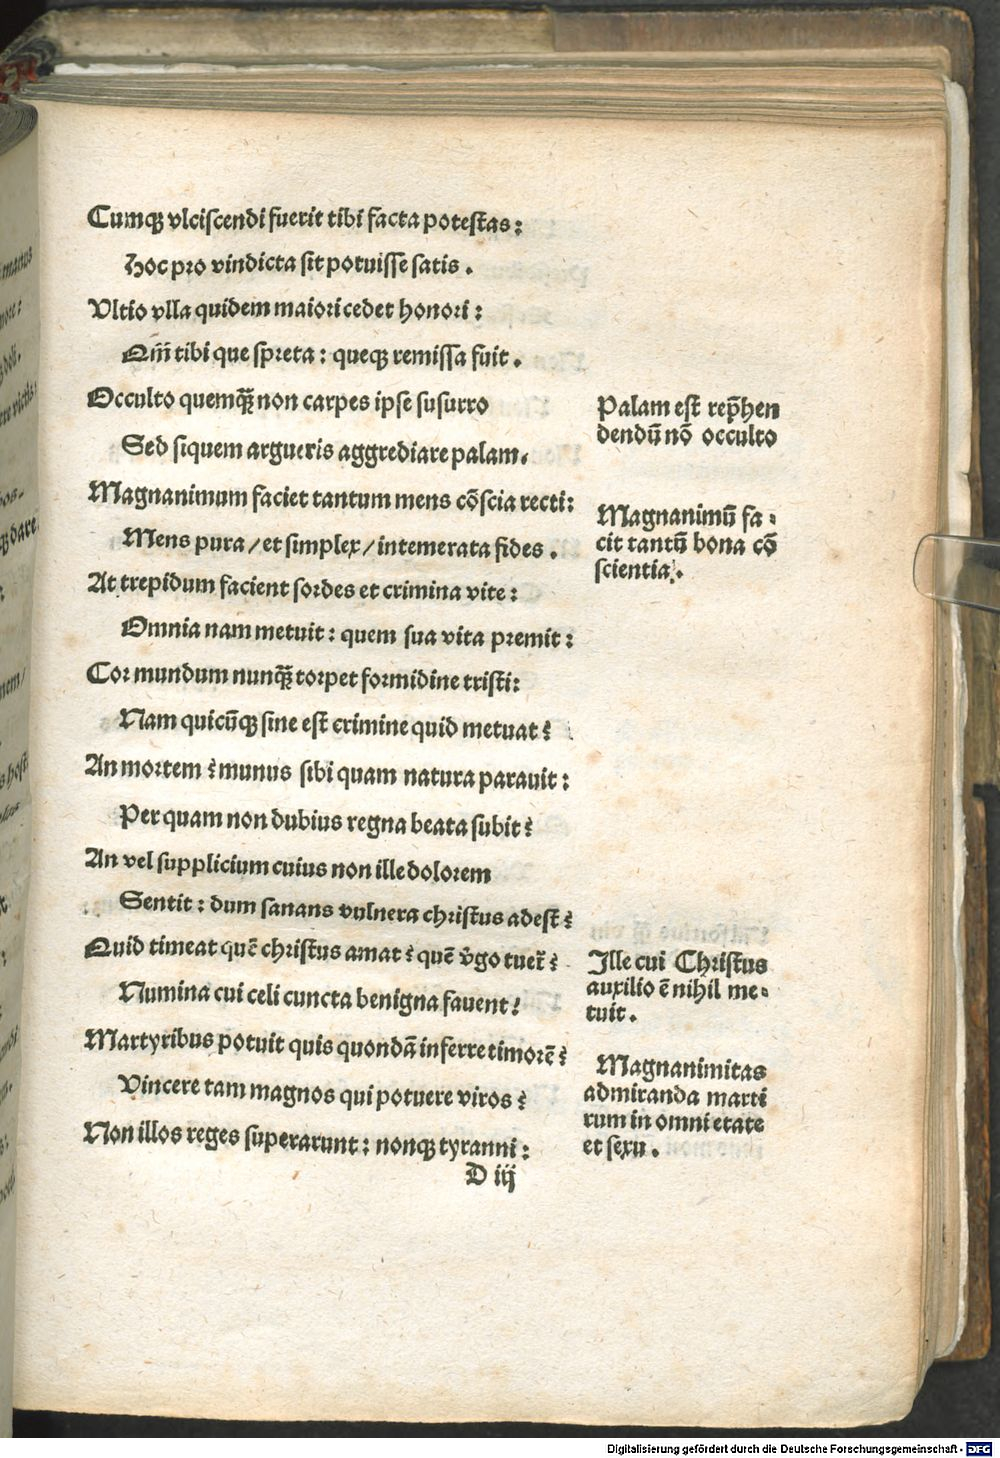 Cumqꝫ vlciscendi fuerit tibi facta potestas:
Hoc pro vindicta sit potuisse satis.
Vltio vlla quidem maiori cedet honori:
Qm̄ tibi que spreta: queqꝫ remissa fuit.
Occulto quemq̄ꝫ non carpes ipse susurro
Sed siquem argueris aggrediare palam.
Magnanimum faciet tantum mens cōscia recti:
Mens pura / et simplex / intemerata fides.
At trepidum facient sordes et crimina vite:
Omnia nam metuit: quem sua vita premit:
Cor mundum nunq̄ꝫ torpet formidine tristi:
Nam quicūqꝫ sine est crimine quid metuat?
An mortem? munus sibi quam natura parauit:
Per quam non dubius regna beata subit?
An vel supplicium cuius non ille dolorem
Sentit: dum sanans vulnera christus adest?
Quid timeat quē christus amat? quē v̄go tuer̄?
Numina cui celi cuncta benigna fauent!
Martyribus potuit quis quondā inferre timorē?
Vincere tam magnos qui potuere viros?
Non illos reges superarunt: nonqꝫ tyranni:
D iij
Palam est rep̄hen
dendū nō occulto
Magnanimū fa-
cit tantū bona cō
scientia.
Ille cui Christus
auxilio ē nihil me-
tuit.
Magnanimitas
admiranda marti
rum in omni etate
et sexu.
Digitalisierung gefördert durch die Deutsche Forschungsgemeinschaft - DFG